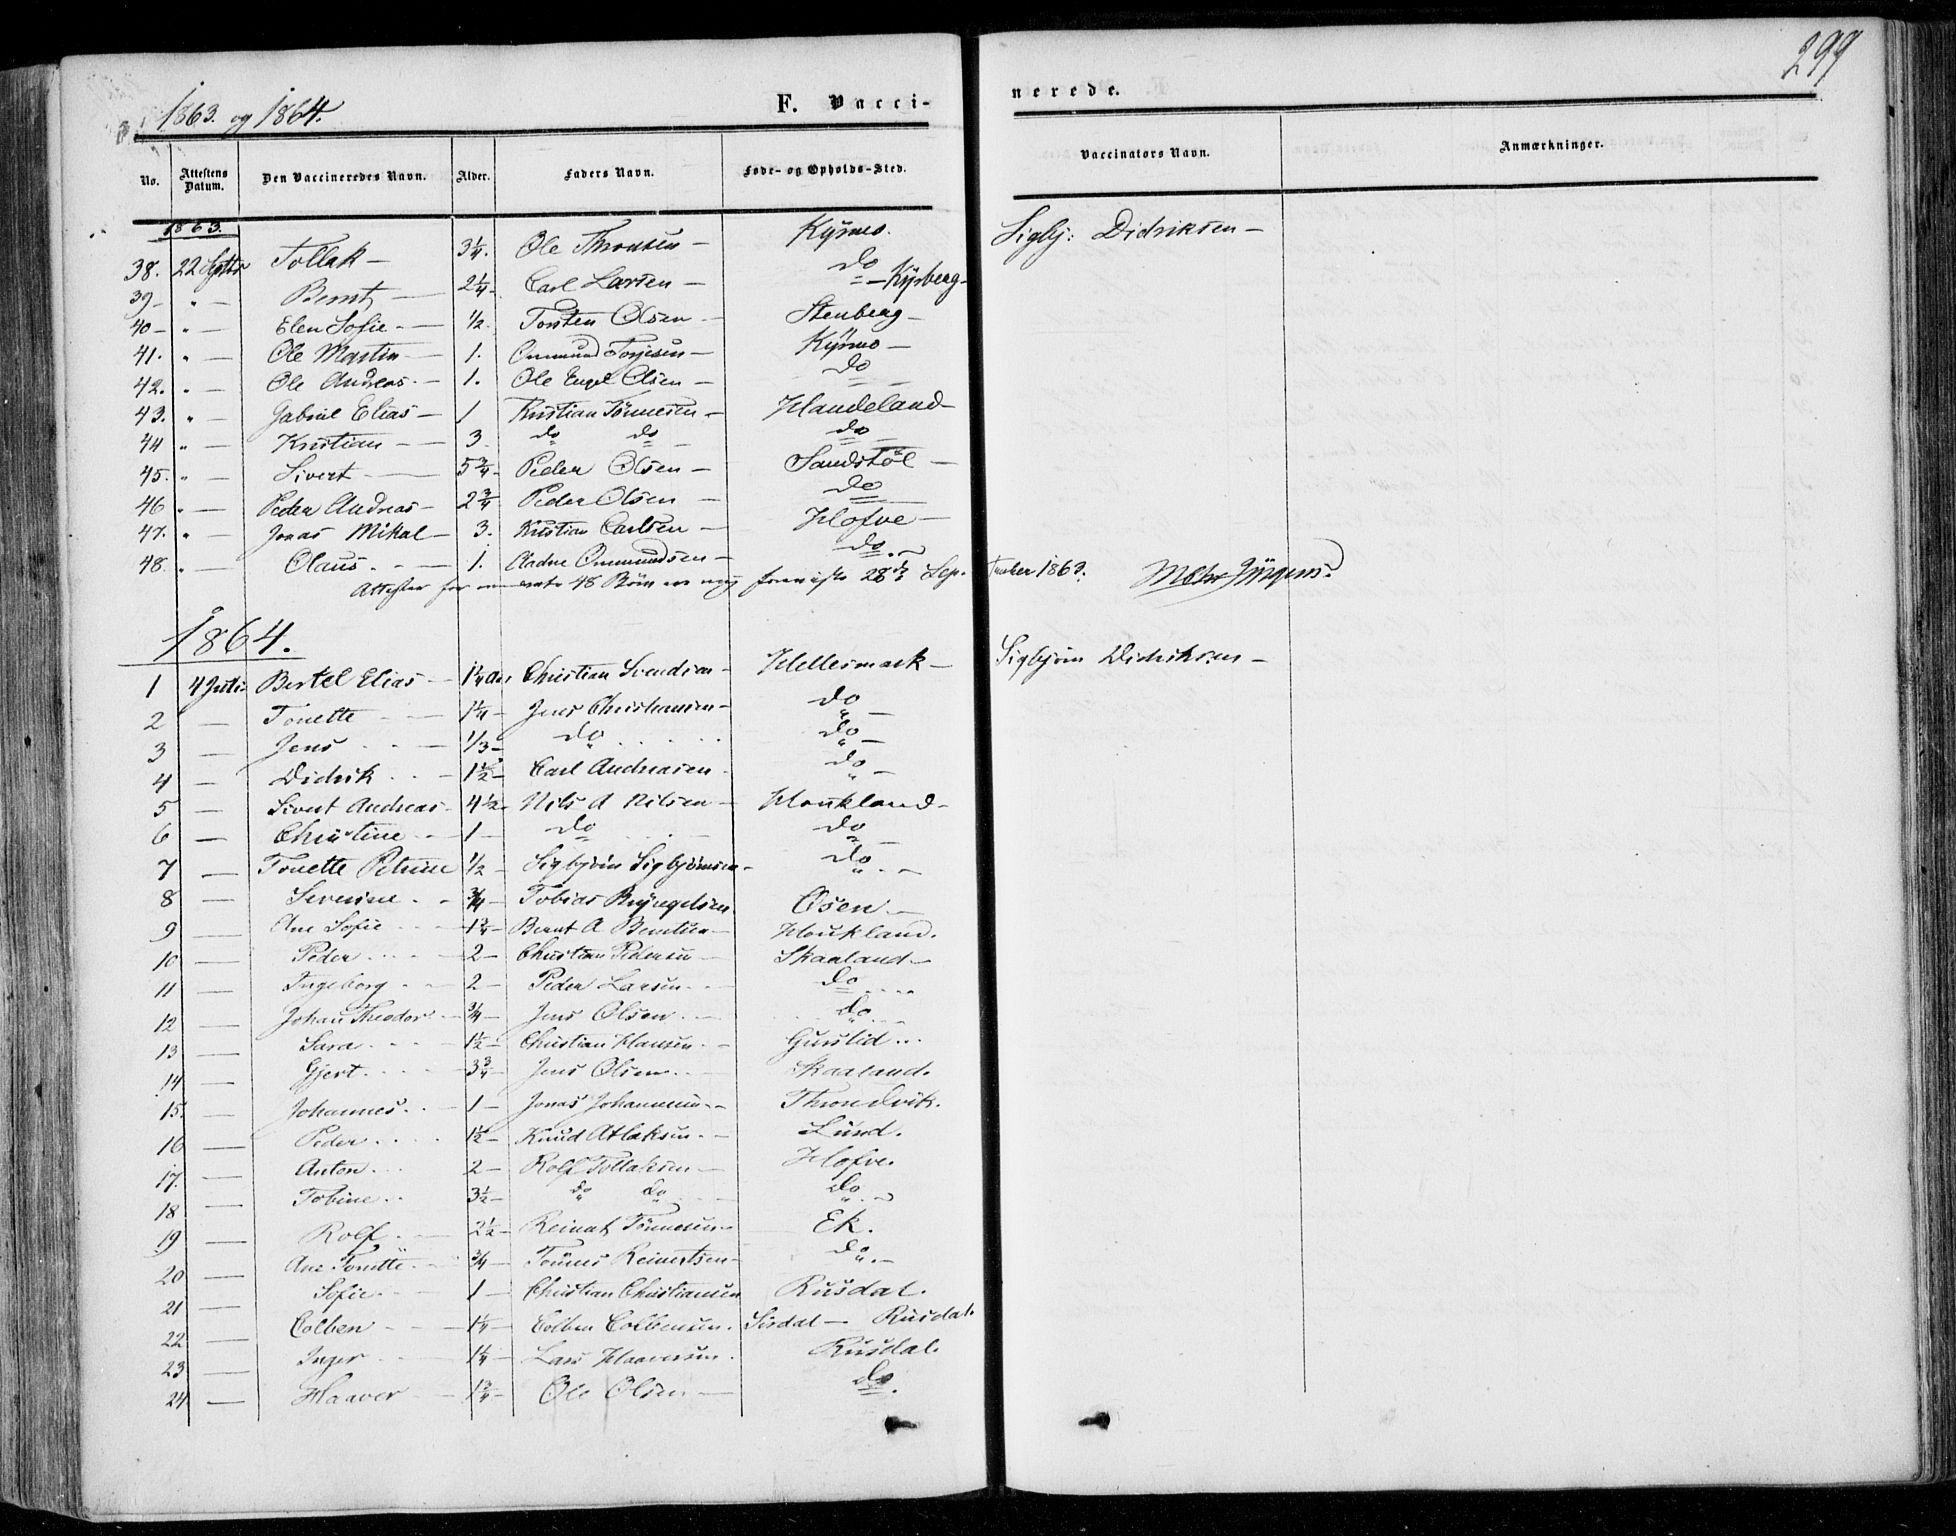 299
1863. og 1864.
F. Vaccinerede.
No. Attestens Datum. Den Vaccineredes Navn. Alder. Faders Navn. Føde- og Opholds-Sted. Vaccinators Navn. Anmærkninger.
1863.
38. 22 Septbr Tollak — 3¼. Ole Thronsen — Kyrmo. Sigbj: Didriksen —
39 — " — Bernt — 2¼ Carl Larsen — do — Kysberg —
40 — " — Elen Sofie — ½. Torsten Olsen — Stenberg —
41. " — Ole Martin — 1. Ommund Torjesen — Kyrmo —
42. " — Ole Andreas. — 1. Ole Engel Olsen — do
43. " — Gabriel Elias — 1 Kristian Tønnesen — Haudeland —
44 " — Kristian — 3 do do do
45. " — Sivert — 5¾ Peder Olsen — Sandstøl —
46 " — Peder Andreas — 2¾ Peder Olsen — do
47. " — Jonas Mikal — 3. Kristian Carlsen — Hofve —
48. " — Olaus. — 1. Ommundsen — do. —
Attester for 48 Børn er mig 28de September 1863.
1864.
1 4 Juli Bertel Elias — 1¼ Christian Svendsen — Hellesmark — Sigbjørn Didriksen —
2 — Tonette — 1¼ — Jens Christiansen — do —
3 — Jens — ⅓ — do do —
4 — Didrik — 1½ — Carl Andreasen. do —
5 — Sivert Andreas — 4½ — Nils A Nilsen — Houkland —
6 — Christine — 1 — do do —
7 — Tonette Petrine ½ — Sigbjørn Sigbjørnsen — do. —
8 — Severine — ¾ — Tobias Ryngelsen Osen —
9 — Ane Sofie — 1¾ — Bernt A Berntsen — Houkland.
10 — Peder — 2 — Christian Pedersen — Skaaland —
11 — Ingeborg — 2 — Peder Larsen — do
12 — Johan Theodor — ¾ — Jens Olsen — do
13 — Sara — 1½ — Christian Hansen — Gurslid
14 — Gjert — 3¾ — Jens Olsen — Skaaland.
15. — Johannes — 1 — Jonas Johannesen — Throndvik.
16 — Peder — 1½ — Knud Atlaksen — Lund.
17. — Anton — 2 — Rolf Tollaksen — Hofve.
18 — Tobine — 3½ — do do do. —
19 — Rolf — 2½ — Reinert Tønnesen — Ek.
20 — Ane Tonette — ¾ — Tønnes Reinertsen — do. —
21 — Sofie — 1 — Christian Christiansen Rusdal.
22 — Colben — 1¼ — Colben Colbensen. Sirdal — Rusdal.
23 — Inger — 1¼ — Lars Haaversen. Rusdal.
24 — Haaver — 1¾ — Ole Olsen — do.